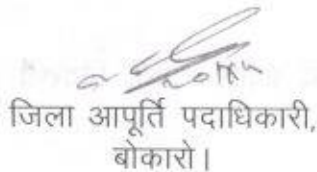 जिला आपूर्ति पदाधिकारी,
बोकारो।